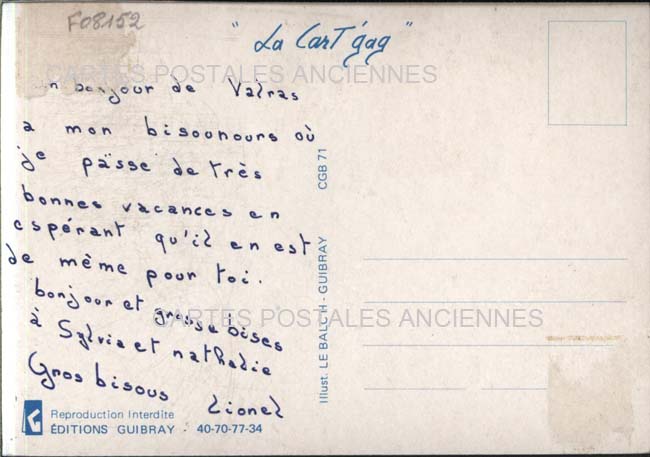 F08152
" La Cart'gag "
CARTES POSTALES ANCIENNES
n bonjour de Valras
a mon bisounours où
je passe de très
bonnes vacances en
espérant qu'il en est
de même pour toi.
bonjour et grosse bises
à Sylvia et nathalie
Gros bisous Lionel
CARTES POSTALES ANCIENNES
Illust. LE BALC'H - GUIBRAY CGB 71
Reproduction Interdite
ÉDITIONS GUIBRAY - 40-70-77-34